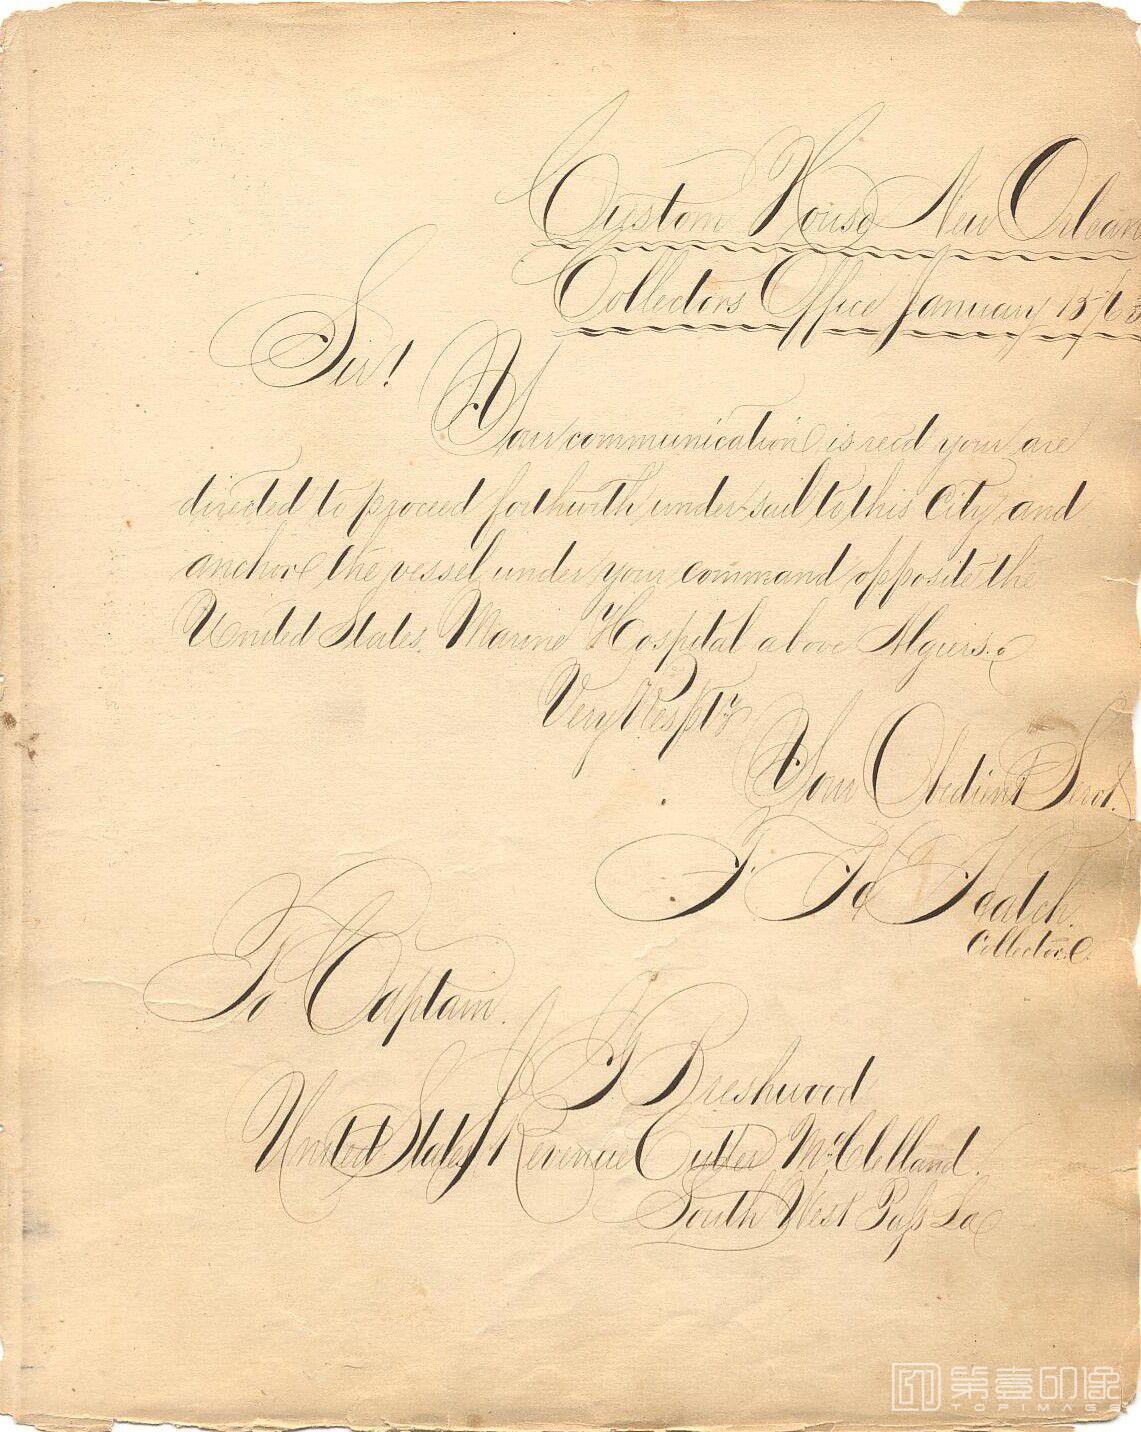 Custom House New Orlean
Collectors Office January 15
Sir!
Your communication is recd your are
directed to proceed forthwith under sail to this City and
anchor the vessel under your command opposite the
United States Marine Hospital above Algiers.
Very Respty
Your Obedient Servt.
F. H. Hatch.
Collector.
To Captain
J G Breshwood
United States Revenue Cutter McClelland.
South West Pass La
第壹印像
TOPIMAGE